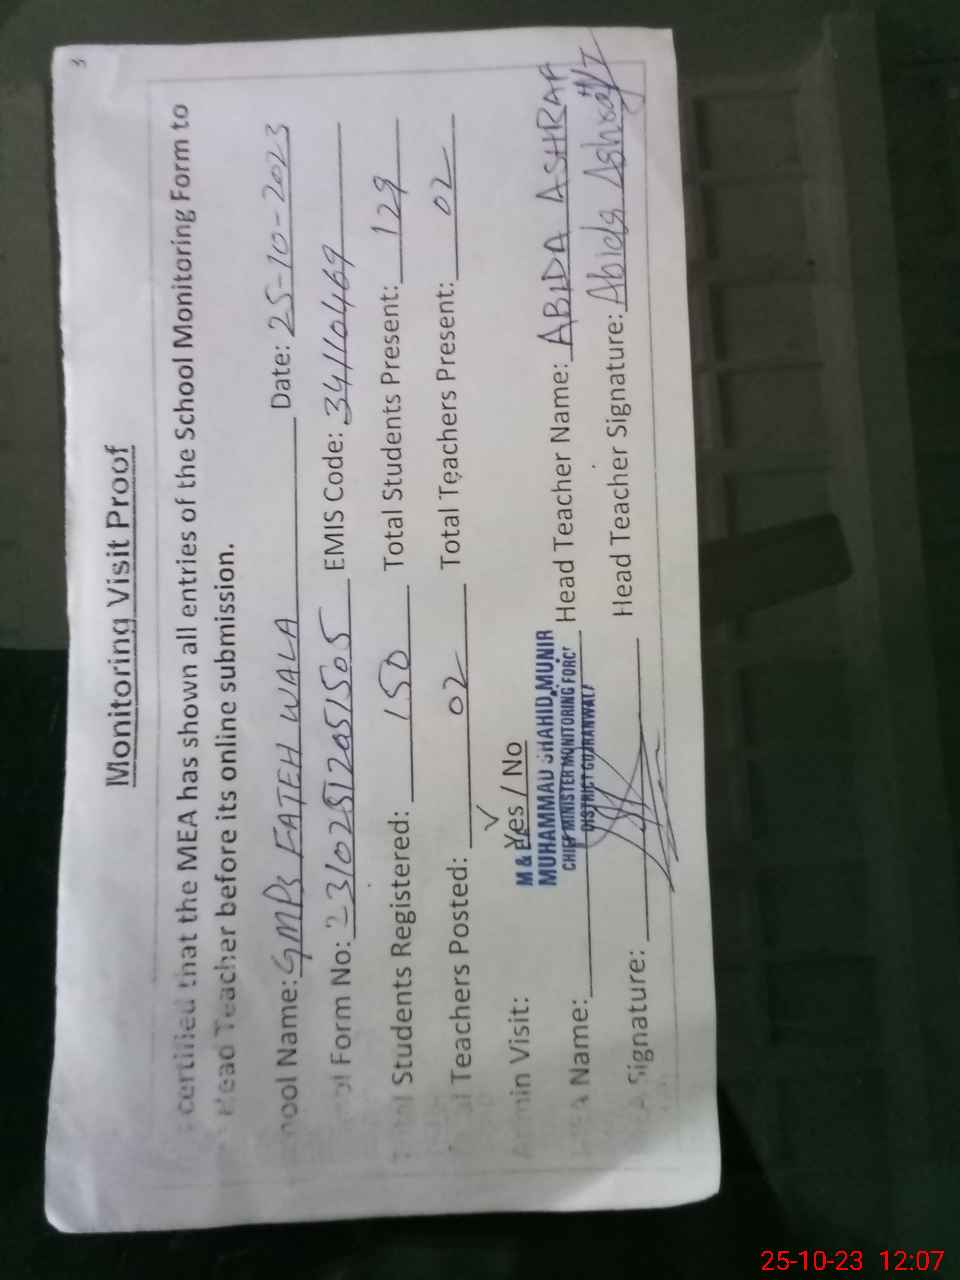 3
Monitoring Visit Proof
certified that the MEA has shown all entries of the School Monitoring Form to
Head Teacher before its online submission.
ool Name: GMPS FATEH WALA Date: 25-10-2023
ol Form No: EMIS Code: 34110469
Total Students Registered: 150 Total Students Present: 129
Teachers Posted: 02 Total Teachers Present: 02
Admin Visit: Yes / No
M & E
MUHAMMAD SHAHID MUNIR
CHIEF MINISTER MONITORING FORC
DISTRICT GUJRANWALA
Name: Head Teacher Name: ABIDA ASHRAF
A Signature: Head Teacher Signature: Abida Ashraf
25-10-23 12:07